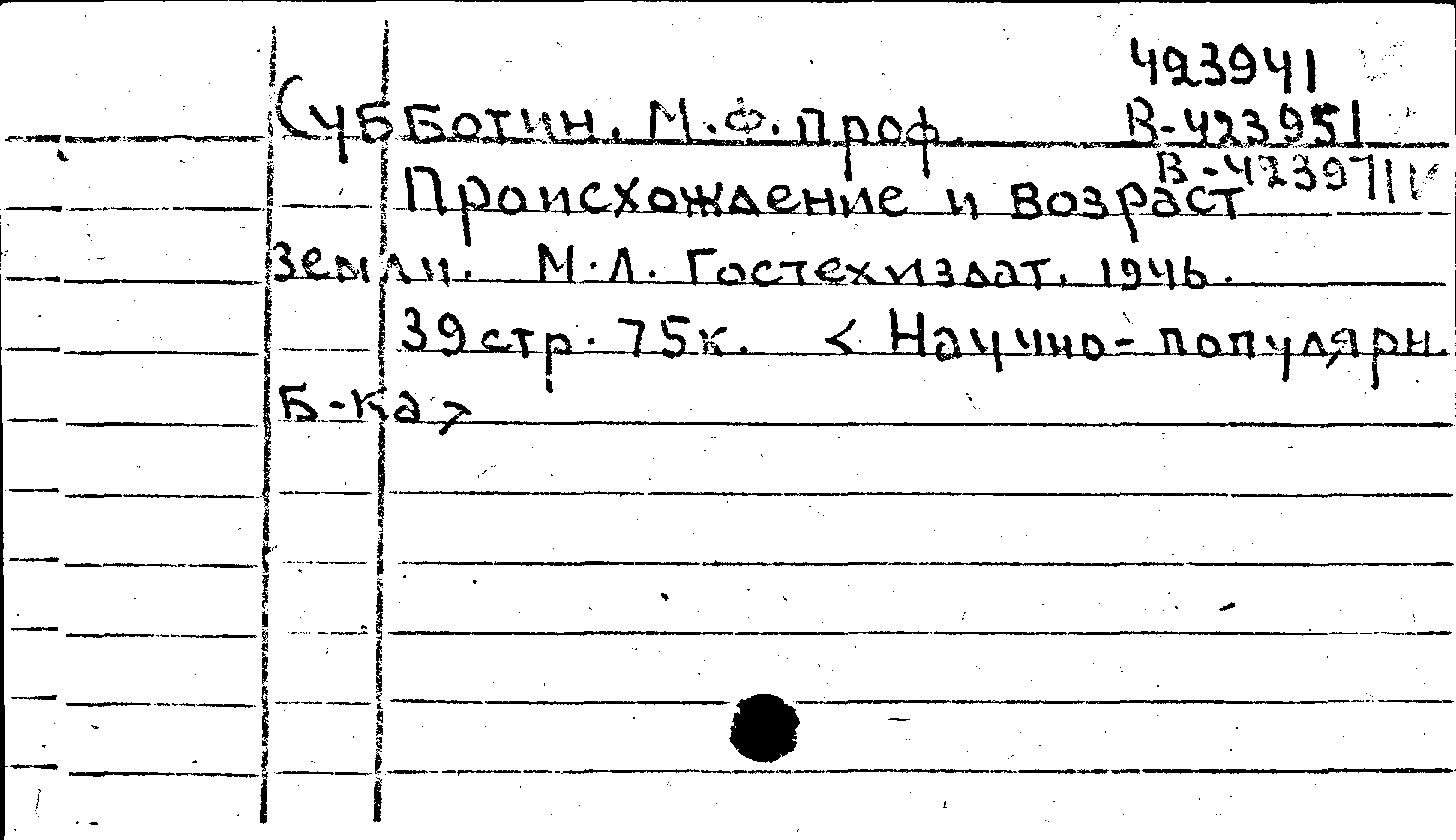 423941
Субботин. М.Ф. проф.
В-423951
В-423971
Происхождение и возраст
земли. М.Л. Гостехиздат. 1946.
39 стр. 75к. < Научно-популярн.
Б-ка >